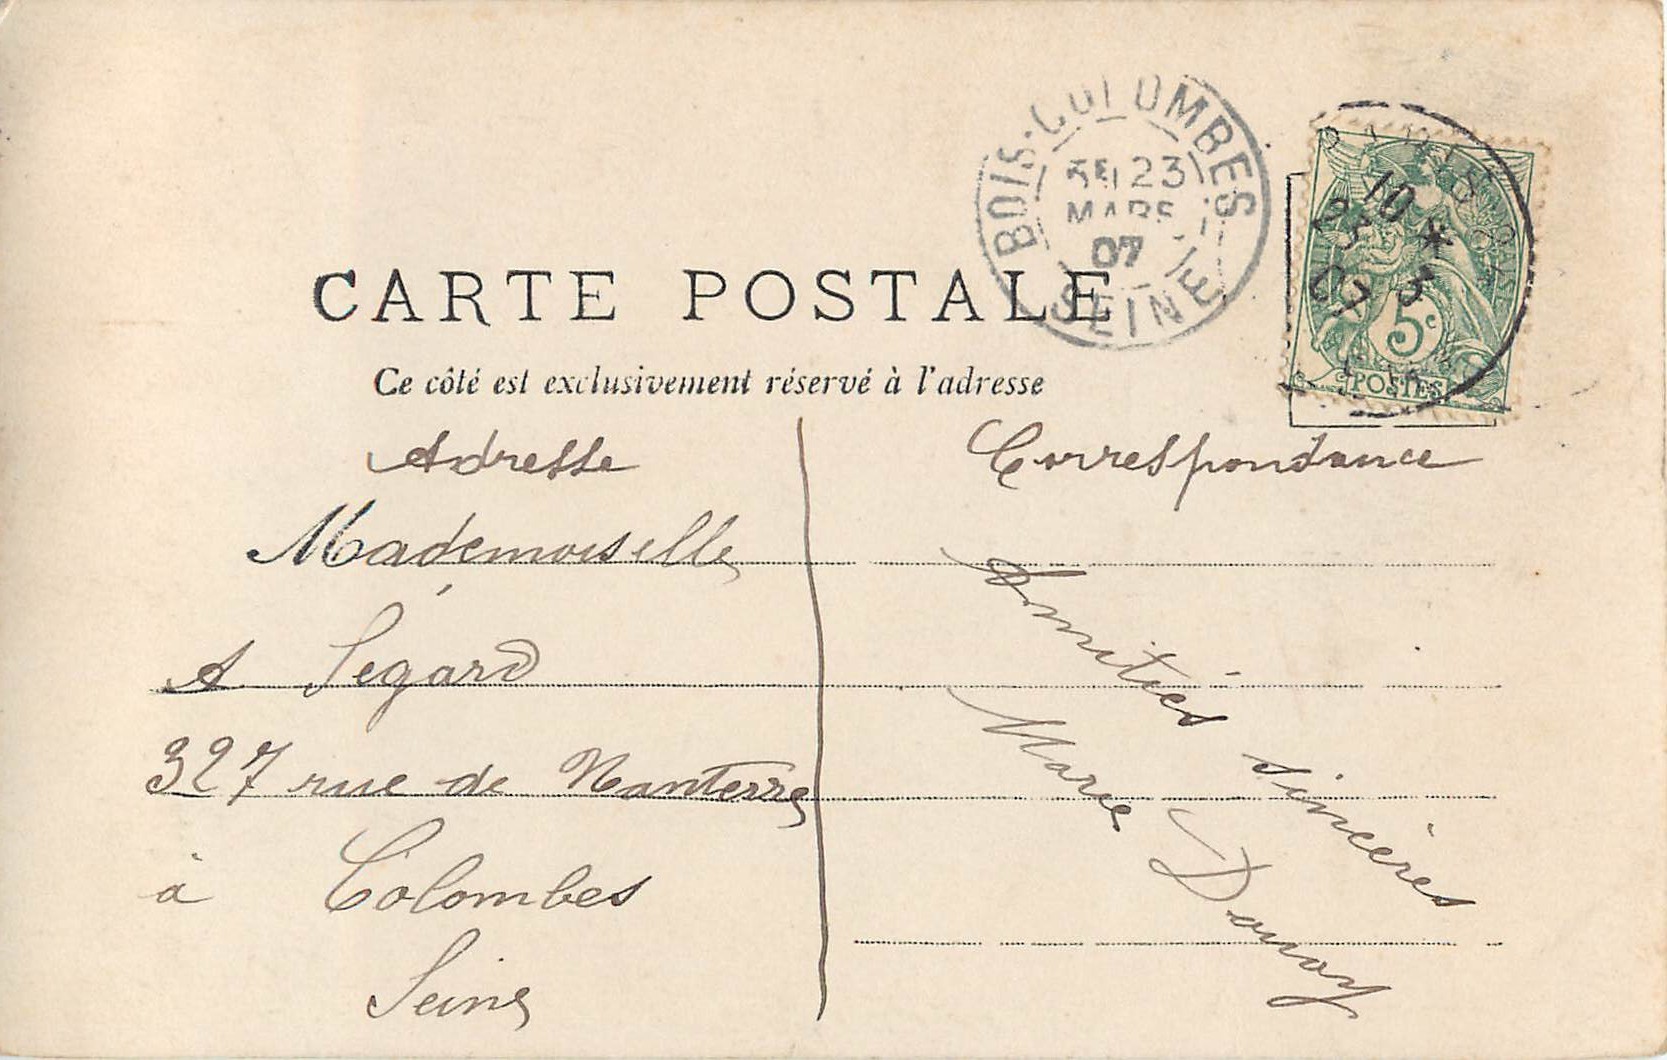 BOIS-COLOMBES
23
MARS
07
SEINE
PARIS
10 *
23 3
07
5c
POSTES
CARTE POSTALE
Ce côté est exclusivement réservé à l'adresse
Adresse
Mademoiselle
A Ségard
327 rue de Nanterre
à Colombes
Seine
Correspondance
Amitiés sincères
Marie Donoy